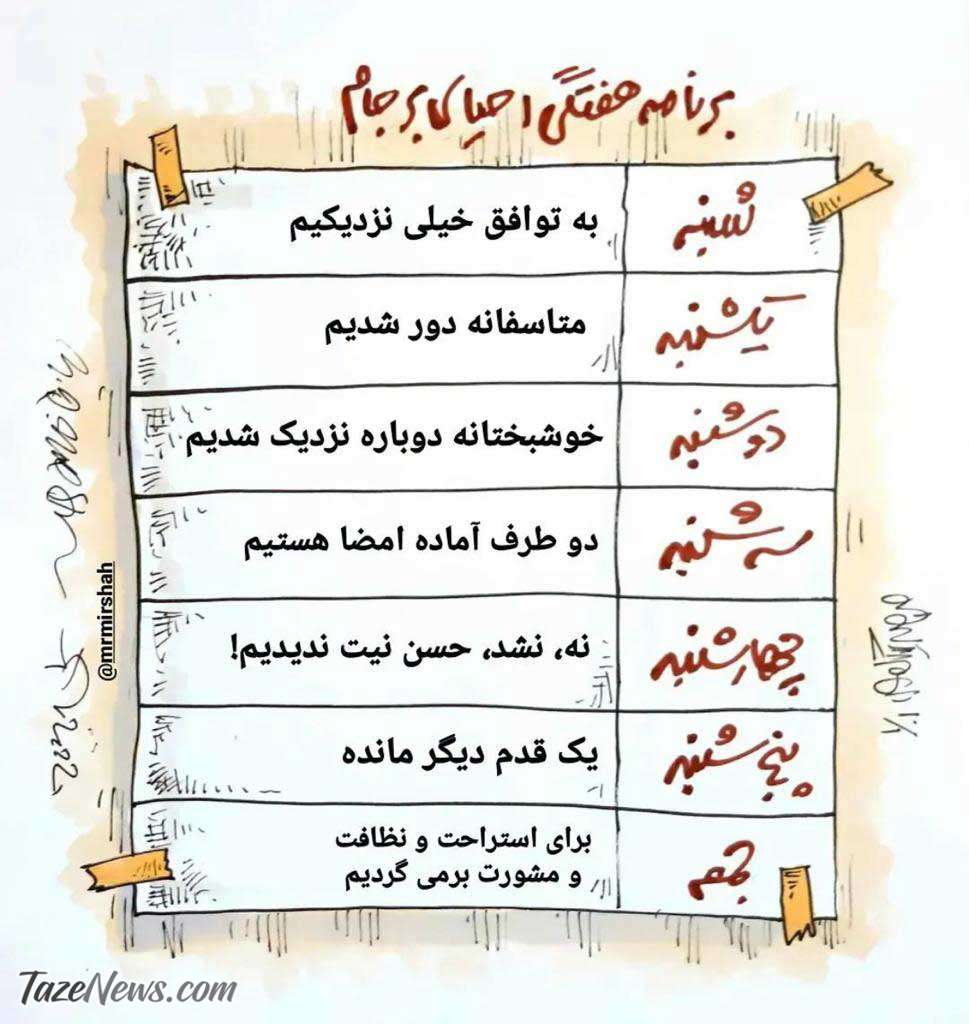 برنامه هفتگی احیای برجام
شنبه
به توافق خیلی نزدیکیم
یکشنبه
متاسفانه دور شدیم
دوشنبه
خوشبختانه دوباره نزدیک شدیم
سه شنبه
دو طرف آماده امضا هستیم
چهارشنبه
نه، نشد، حسن نیت ندیدیم!
پنجشنبه
یک قدم دیگر مانده
جمعه
برای استراحت و نظافت
و مشورت برمی گردیم
@mrmirshah
2022
TazeNews.com